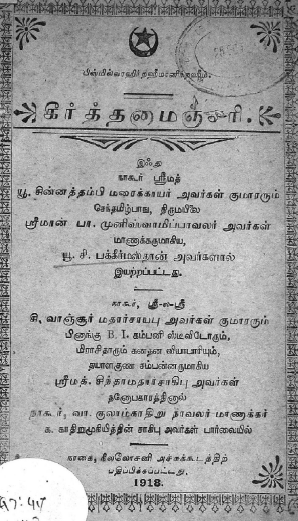 பிஸ்மில்லாஹிர்றஹ்மானிர்றஹீம்.
கீர்த்தனமஞ்சரி.
இஃது
நாகூர் ஸ்ரீமத்
யூ. சின்னத்தம்பி மரைக்காயர் அவர்கள் குமாரரும்
செந்தமிழ்நாடு, திருமயிலை
ஸ்ரீமான் பா. முனிஸ்வாமிப்பாவலர் அவர்கள்
மாணாக்கருமாகிய,
யூ. சி. பக்கீர்மஸ்தான் அவர்களால்
இயற்றப்பட்டது.
நாகூர், ஸ்ரீ-ல-ஸ்ரீ
சி. வாஞ்சூர் மதார்சாயபு அவர்கள் குமாரரும்
பினாங்கு B. I. கம்பனி
மிராசிதாரும் கனதன வியாபாரியும்,
தயாளகுண சம்பன்னருமாகிய
ஸ்ரீமத். சிந்தாமதார்சாகிபு அவர்கள்
தனோபகாரத்தினால்
நாகூர், வா. குலாம்காதிறு நாவலர் மாணாக்கர்
க. காதிறுமுகியித்தீன் சாகிபு அவர்கள் பார்வையில்
நாகை: நீலலோசனி அச்சுக்கூடத்திற்
பதிப்பிக்கப்பட்டது.
1918.